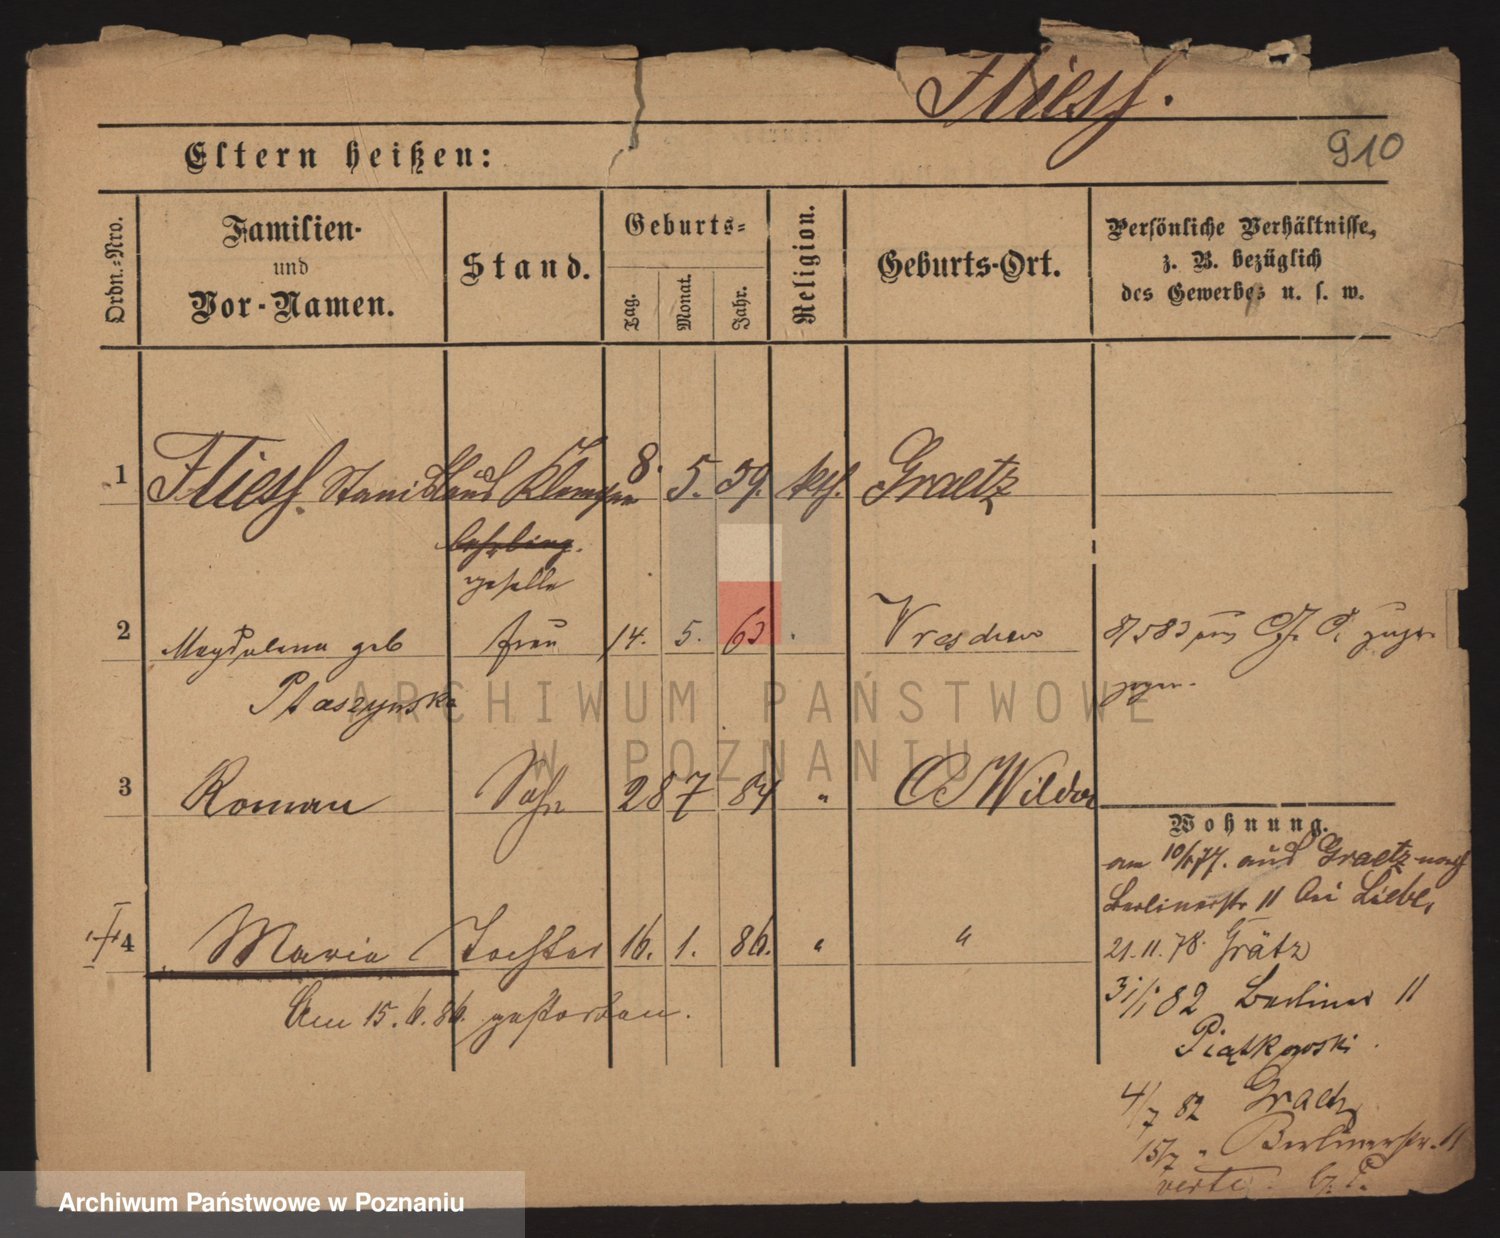 Fliess.
910
Eltern heißen:
Ordn.-Nro.
Familien-
und
Vor-Namen.
Stand.
Geburts-
Tag.
Monat.
Jahr.
Religion.
Geburts-Ort.
Persönliche Verhältnisse,
z. B. bezüglich
des Gewerbes u. s. w.
1 Fliess. Stanislaus 8. 5. 59. kth. Graetz
Lehrling.
geselle
2 Magdalena geb Frau 14. 5. 63 Vreschen
Ptaszynska
3 Roman Sohn 28 7 84 " Wilda
Wohnung.
am 10/1 77. aus Graetz nach
Berlinerstr 11 bei Liebe,
4 Maria Tochter 16. 1. 86. " "
21. 11. 78. Grätz
Am 15. 6. 86. gestorben.
82 Berliner 11
Piątkowski.
4/7 82 Graetz
15/7 " Berlinerstr. 11
verte.
ARCHIWUM PAŃSTWOWE
W POZNANIU
Archiwum Państwowe w Poznaniu